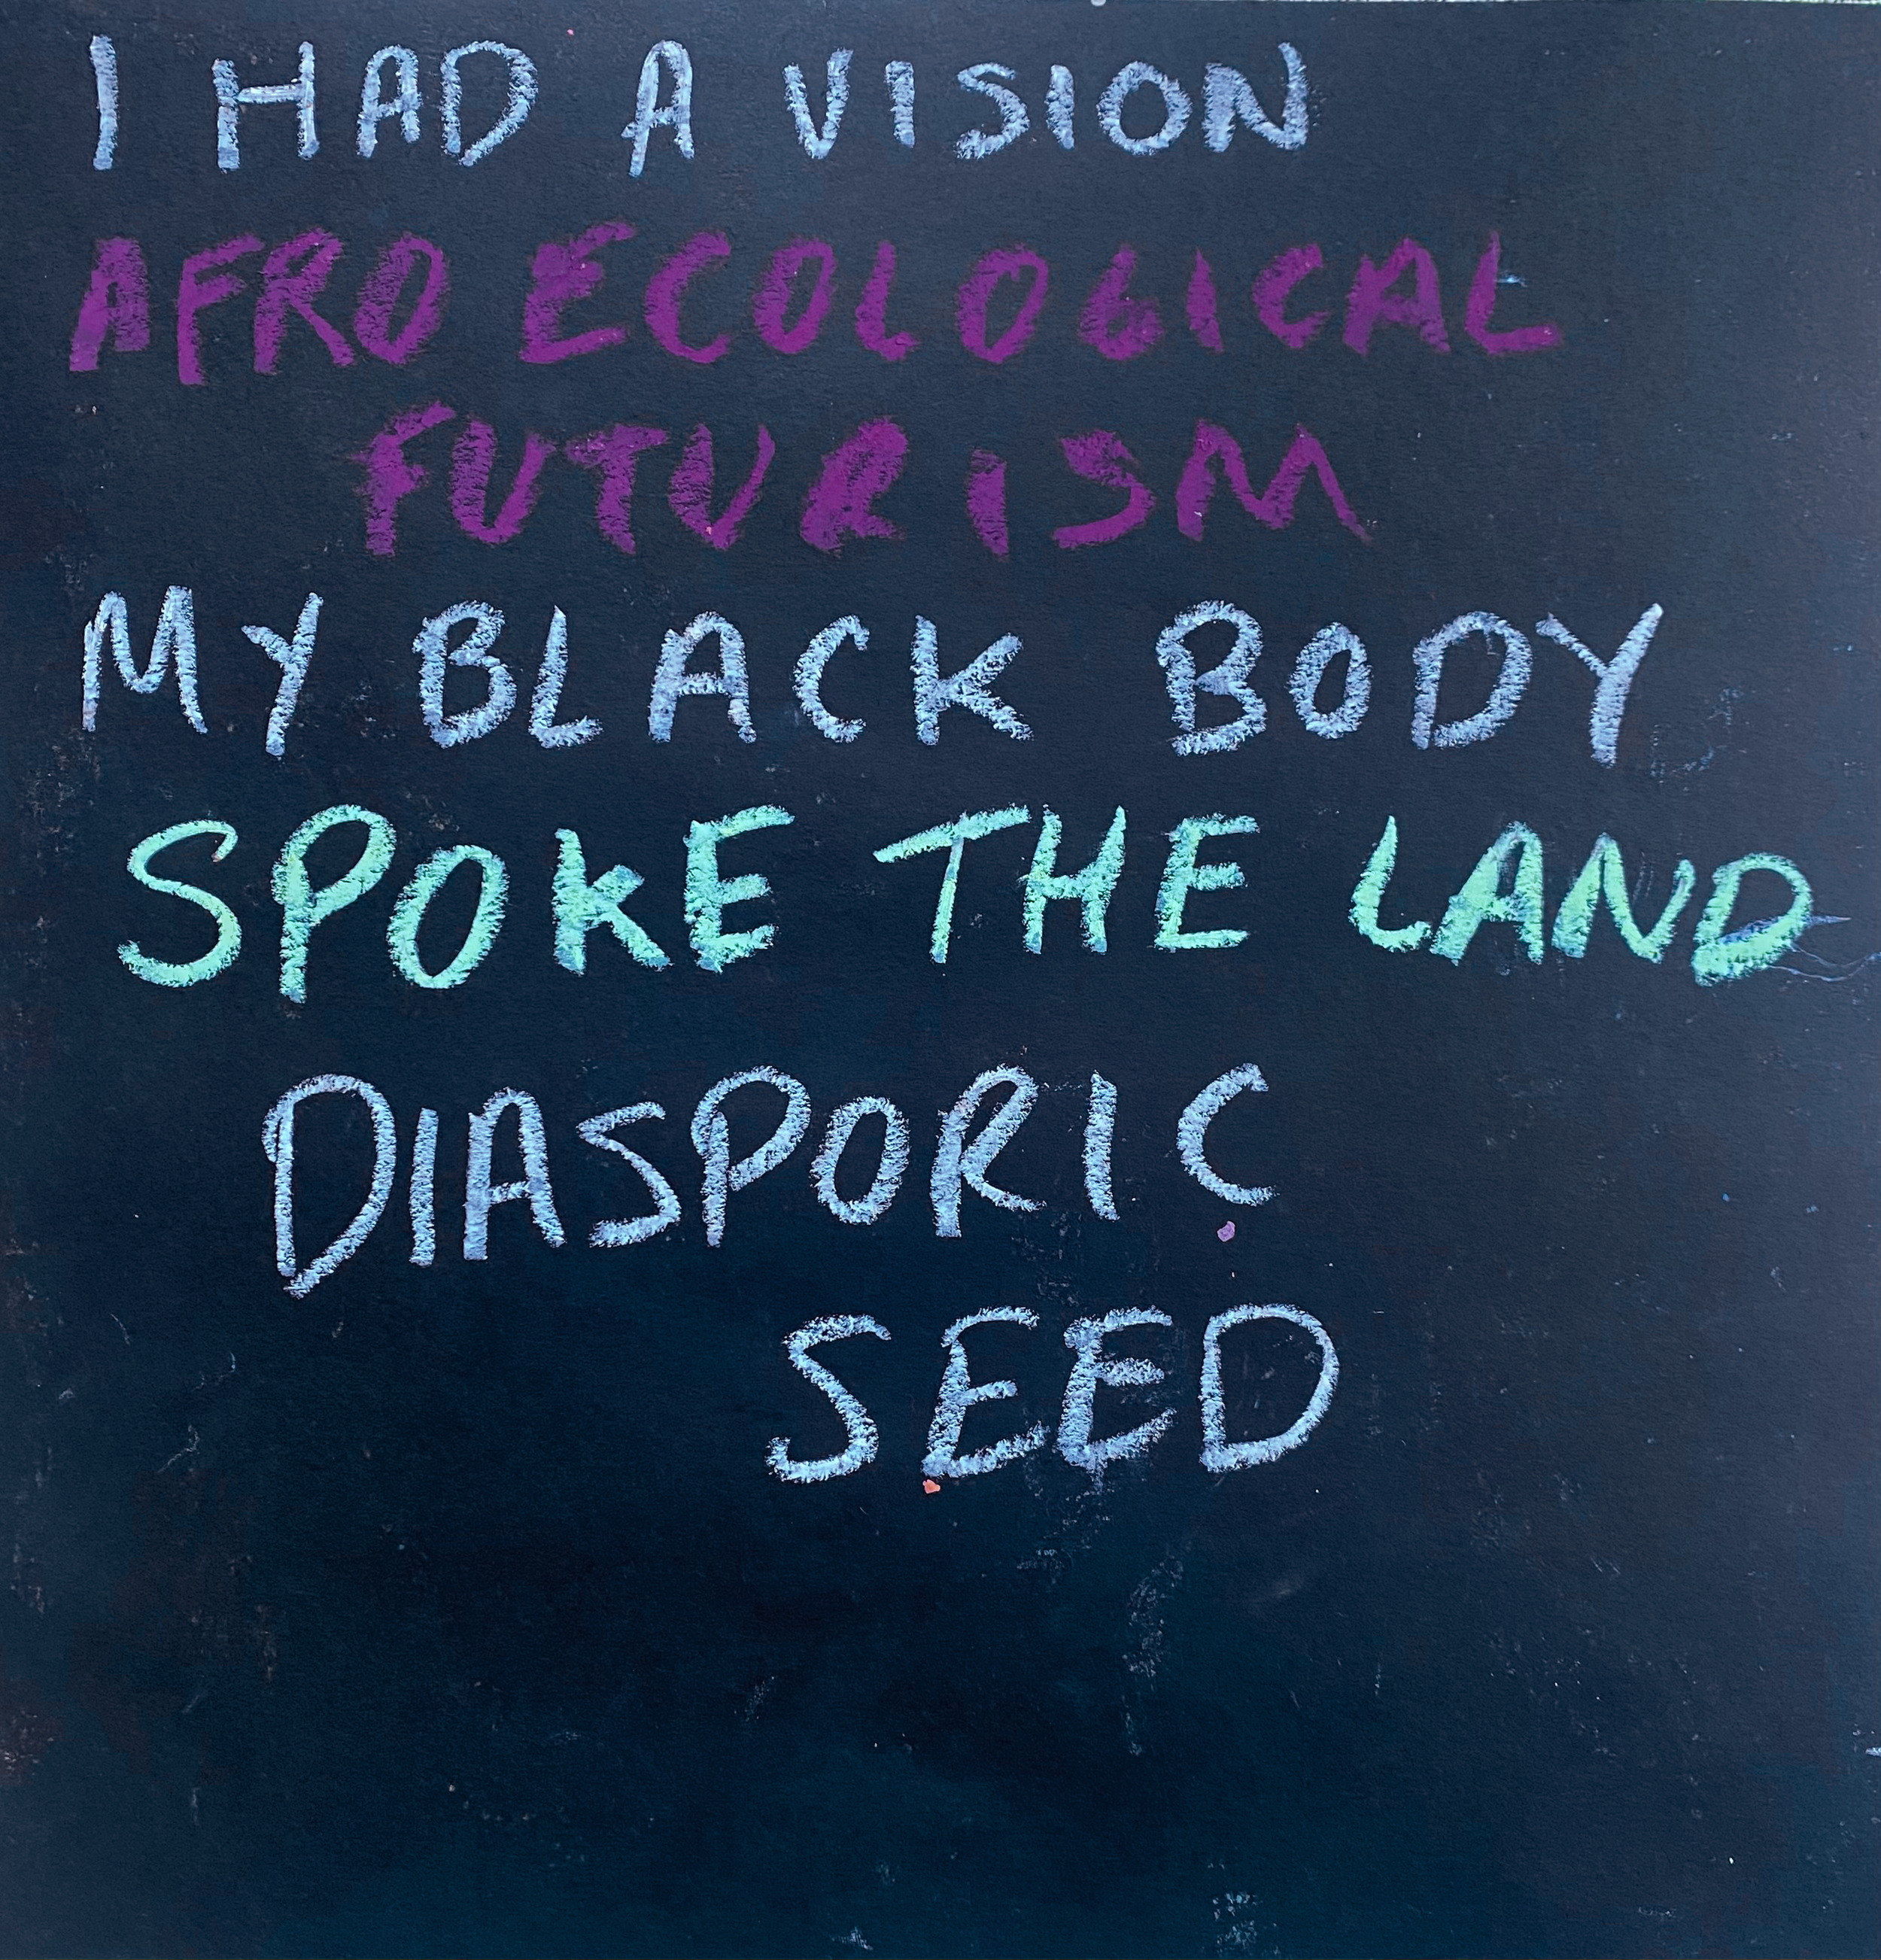 I HAD A VISION
AFRO ECOLOGICAL
FUTURISM
MY BLACK BODY
SPOKE THE LAND
DIASPORIC
SEED